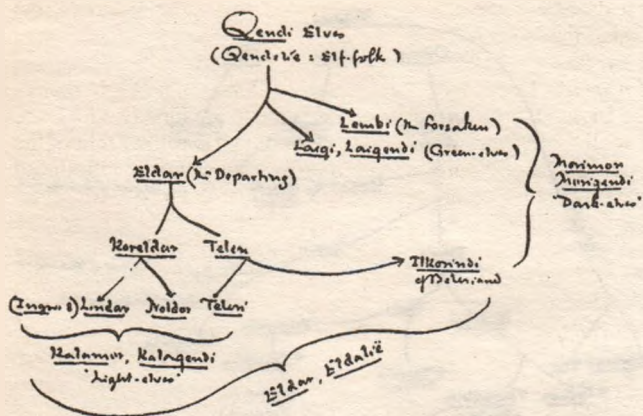 Qendi Elves
(Qendelie : Elf-folk)
Lembi (the Forsaken)
Laiqi, Laiqendi (Green-elves)
Eldar (the Departing)
Morimor
Moriqendi
'Dark-elves'
Koreldar Teleri
Ilkorindi
of Beleriand
(Ingwe's) Lindar Noldor Teleri
Kalamor, Kalaqendi
'Light-elves'
Eldar, Eldalië